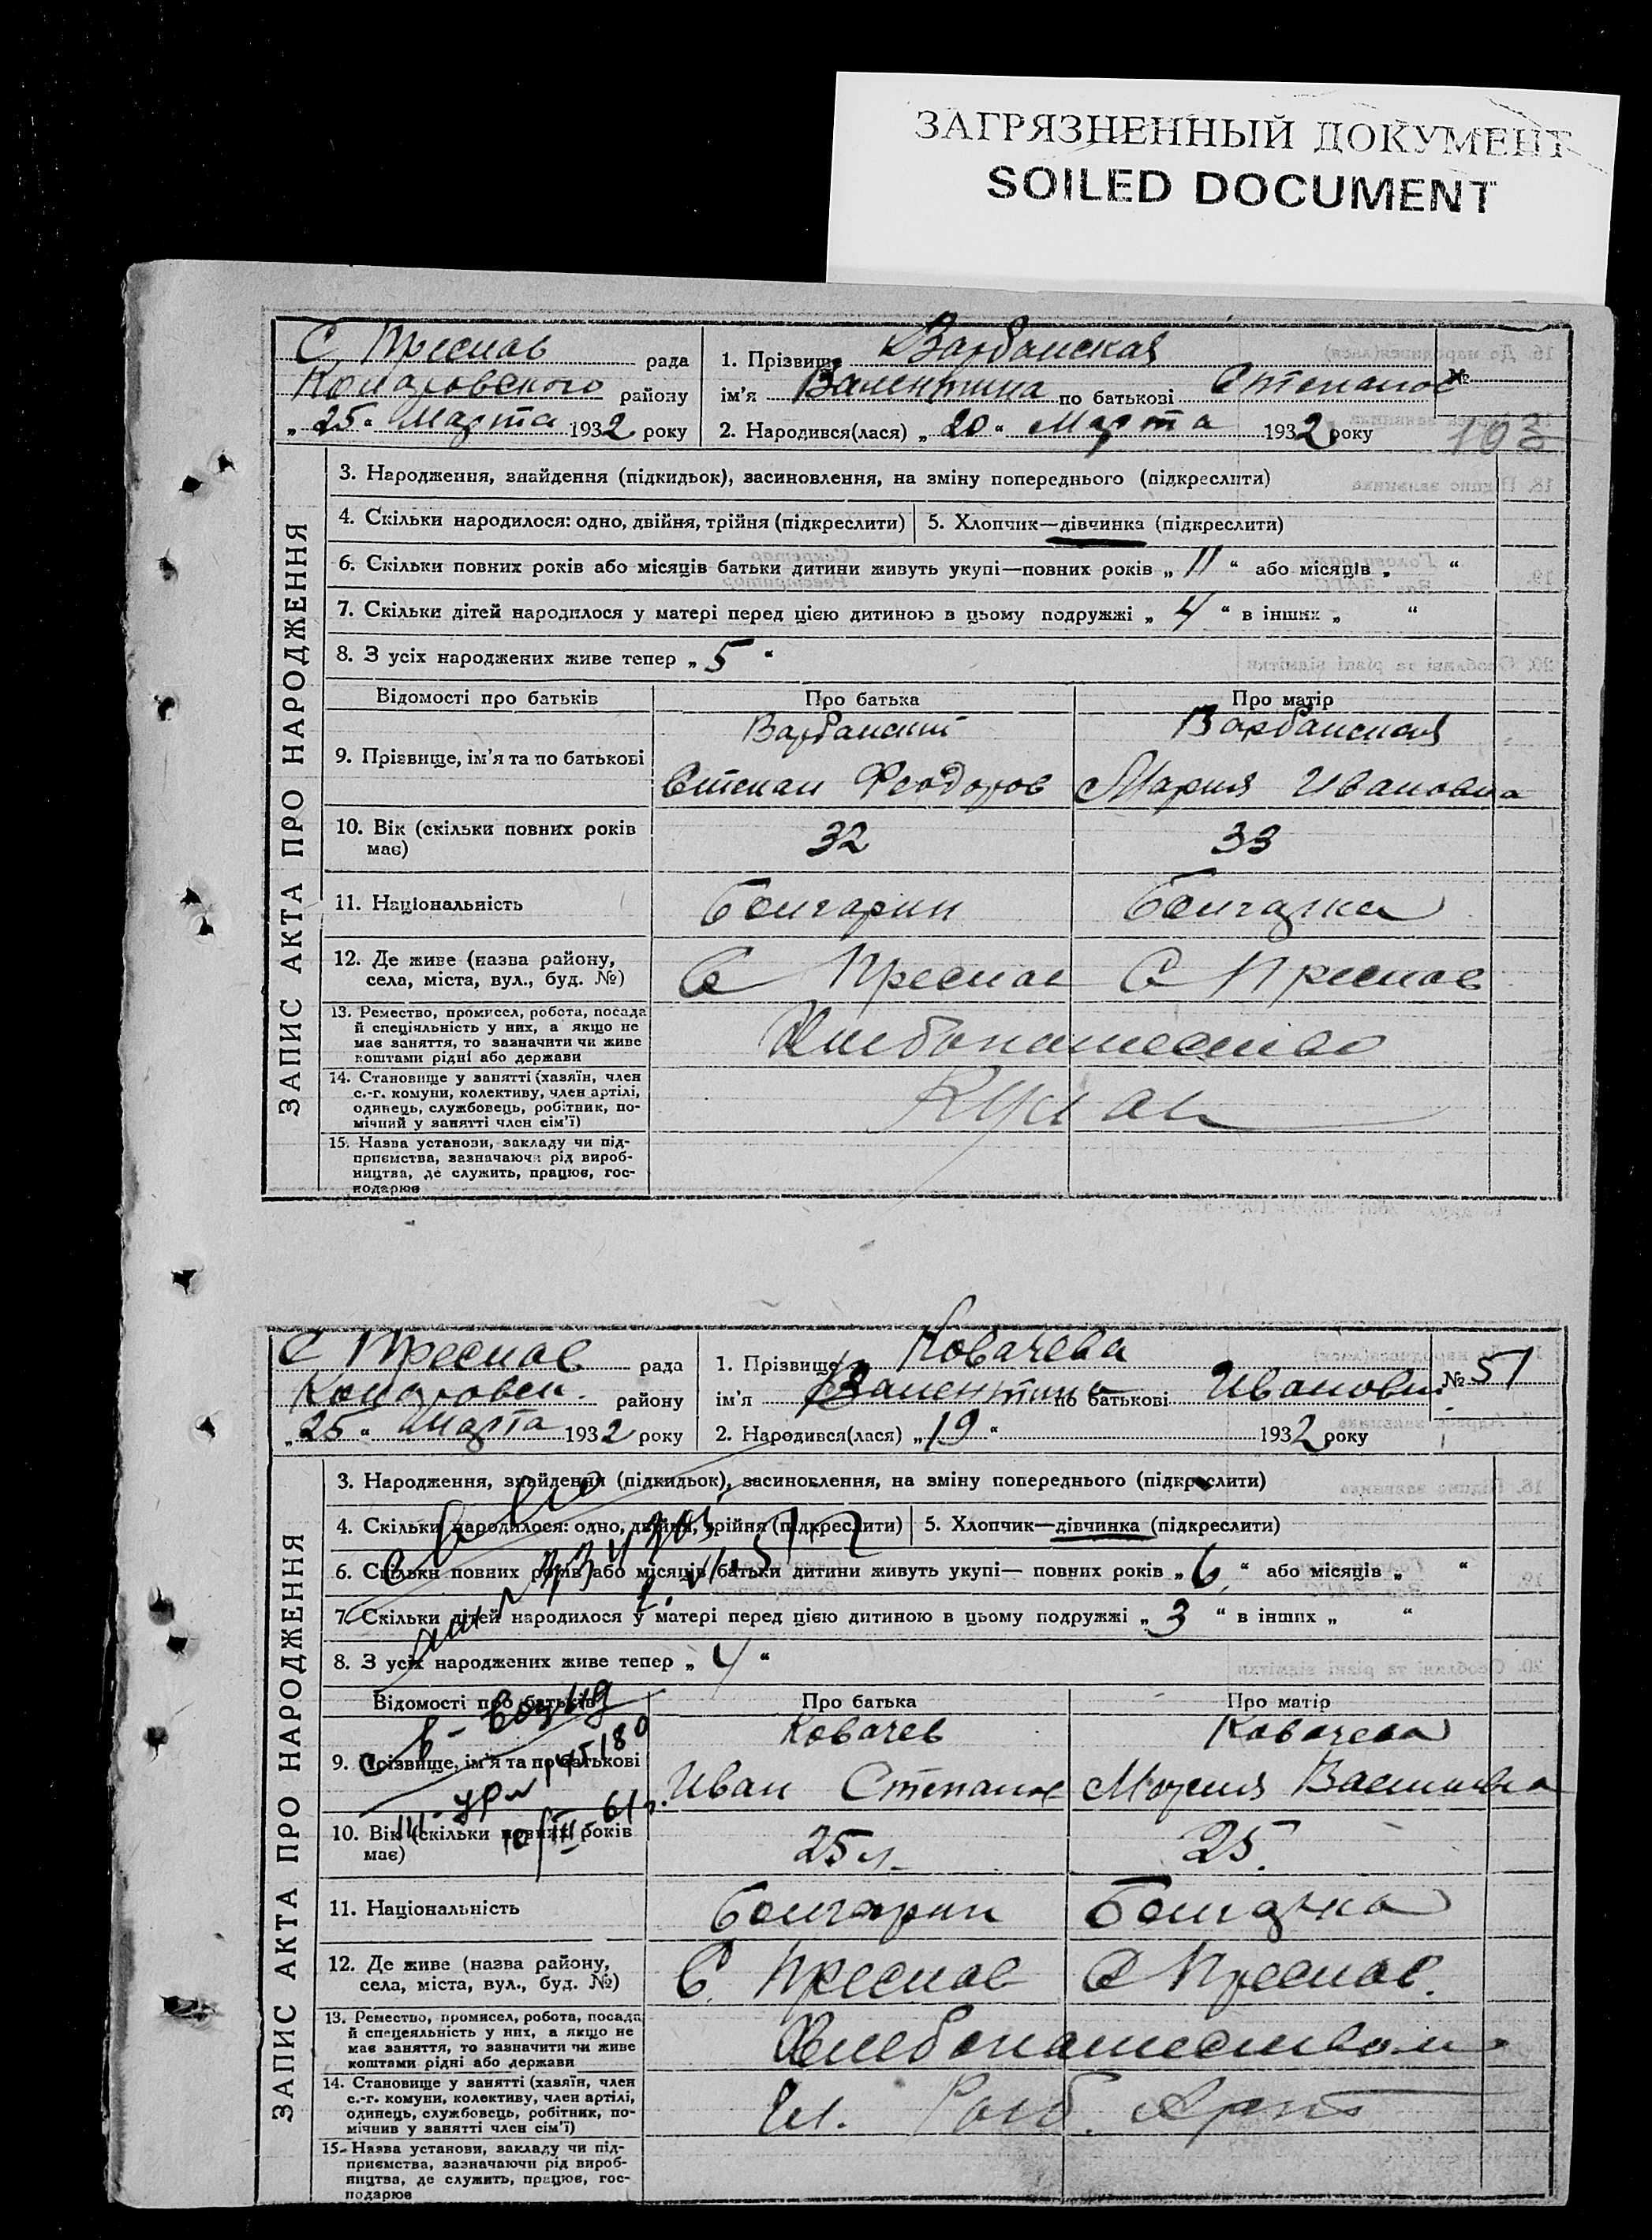 ЗАГРЯЗНЕННЫЙ ДОКУМЕНТ
SOILED DOCUMENT
ЗАПИС АКТА ПРО НАРОДЖЕННЯ
С Преслав рада
Коларовского району
„25“ Марта 1932 року
1. Прізвище Варбанская
ім'я Валентина по батькові Степанов
2. Народився(лася) „20“ Марта 1932 року
№
103
3. Народження, знайдення (підкидьок), засиновлення, на зміну попереднього (підкреслити)
4. Скільки народилося: одно, двійня, трійня (підкреслити) 5. Хлопчик—дівчинка (підкреслити)
6. Скільки повних років або місяців батьки дитини живуть укупі—повних років „11“ або місяців „ “
7. Скільки дітей народилося у матері перед цією дитиною в цьому подружжі „4“ в інших „ “
8. З усіх народжених живе тепер „5“
Відомості про батьків Про батька Про матір
9. Прізвище, ім'я та по батькові
Варбанский Варбанская
Степан Феодоров Мария Ивановна
10. Вік (скільки повних років
має)
32 33
11. Національність Болгарин Болгарка
12. Де живе (назва району,
села, міста, вул., буд. №)
С Преслав С Преслав
13. Ремество, промисел, робота, посада
й спеціяльність у них, а якщо не
має заняття, то зазначити чи живе
коштами рідні або держави
Хлебопашество
14. Становище у занятті (хазяїн, член
с.-г. комуни, колективу, член артілі,
одинець, службовець, робітник, по-
мічний у занятті член сім'ї)
Кулак
15. Назва установи, закладу чи під-
приємства, зазначаючи рід вироб-
ництва, де служить, працює, гос-
подарює
ЗАПИС АКТА ПРО НАРОДЖЕННЯ
С Преслав рада
Коларовск. району
„25“ Марта 1932 року
1. Прізвище Ковачева
ім'я Валентина по батькові Ивановн.
2. Народився(лася) „19“ 1932 року
№ 51
3. Народження, знайдення (підкидьок), засиновлення, на зміну попереднього (підкреслити)
4. Скільки народилося: одно, двійня, трійня (підкреслити) 5. Хлопчик—дівчинка (підкреслити)
6. Скільки повних років або місяців батьки дитини живуть укупі— повних років „6“ або місяців „ “
7. Скільки дітей народилося у матері перед цією дитиною в цьому подружжі „3“ в інших „ “
8. З усіх народжених живе тепер „4“
Відомості про батьків Про батька Про матір
9. Прізвище, ім'я та по батькові
Ковачев Ковачева
Иван Степанов Мария Васильевна
10. Вік (скільки повних років
має)
25 л. 25.
11. Національність Болгарин Болгарка
12. Де живе (назва району,
села, міста, вул., буд. №)
С. Преслав С Преслав.
13. Ремество, промисел, робота, посада
й спецеяльність у них, а якщо не
має заняття, то зазначити чи живе
коштами рідні або держави
Хлебопашеством
14. Становище у занятті (хазяїн, член
с.-г. комуни, колективу, член артілі,
одинець, службовець, робітник, по-
мічнив у занятті член сім'ї)
Чл. Арт
15. Назва установи, закладу чи під-
приємства, зазначаючи рід вироб-
ництва, де служить, працює, гос-
подарює